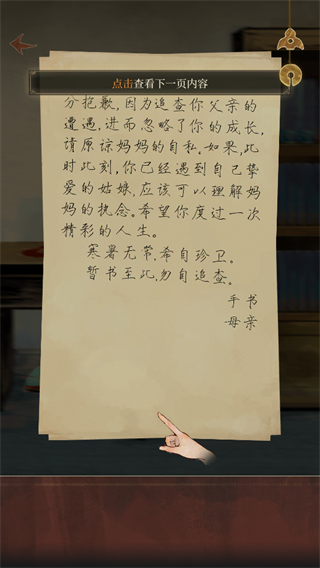 点击查看下一页内容
分抱歉,因为追查你父亲的
遭遇,进而忽略了你的成长,
请原谅妈妈的自私。如果,此
时此刻,你已经遇到自己挚
爱的姑娘,应该可以理解妈
妈的执念。希望你度过一次
精彩的人生。
寒暑无常,希自珍卫。
暂书至此,勿自追查。
手书
母亲